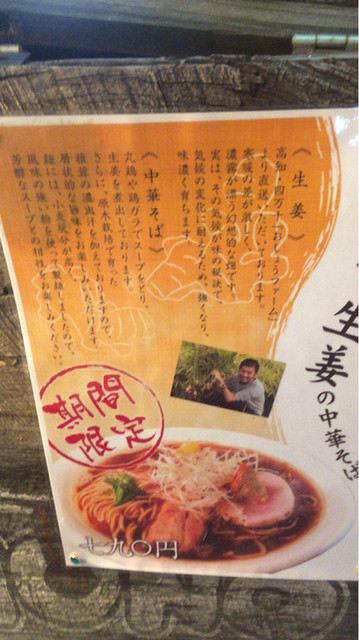 生姜の中華そば
《生姜》
高知・四万十「おしょうファーム」
より直送しております。
寒暖の差が激しく、
濃霧が漂う幻想的な麓です。
実は、その気候が味の秘訣で、
気候の変化に耐えるため、強くなり、
味濃く育ちます。
《中華そば》
丸鶏や鶏ガラでスープをとり、
生姜を煮出しております。
さらに、原木栽培で育った
椎茸の濃出汁を加えておりますので、
層状的な旨味をお楽しみいただけます。
麺には、小麦灰分が高い
風味の強い粉を使って
芳醇なスープとの相性をお楽しみください。
期間
限定
七九〇円